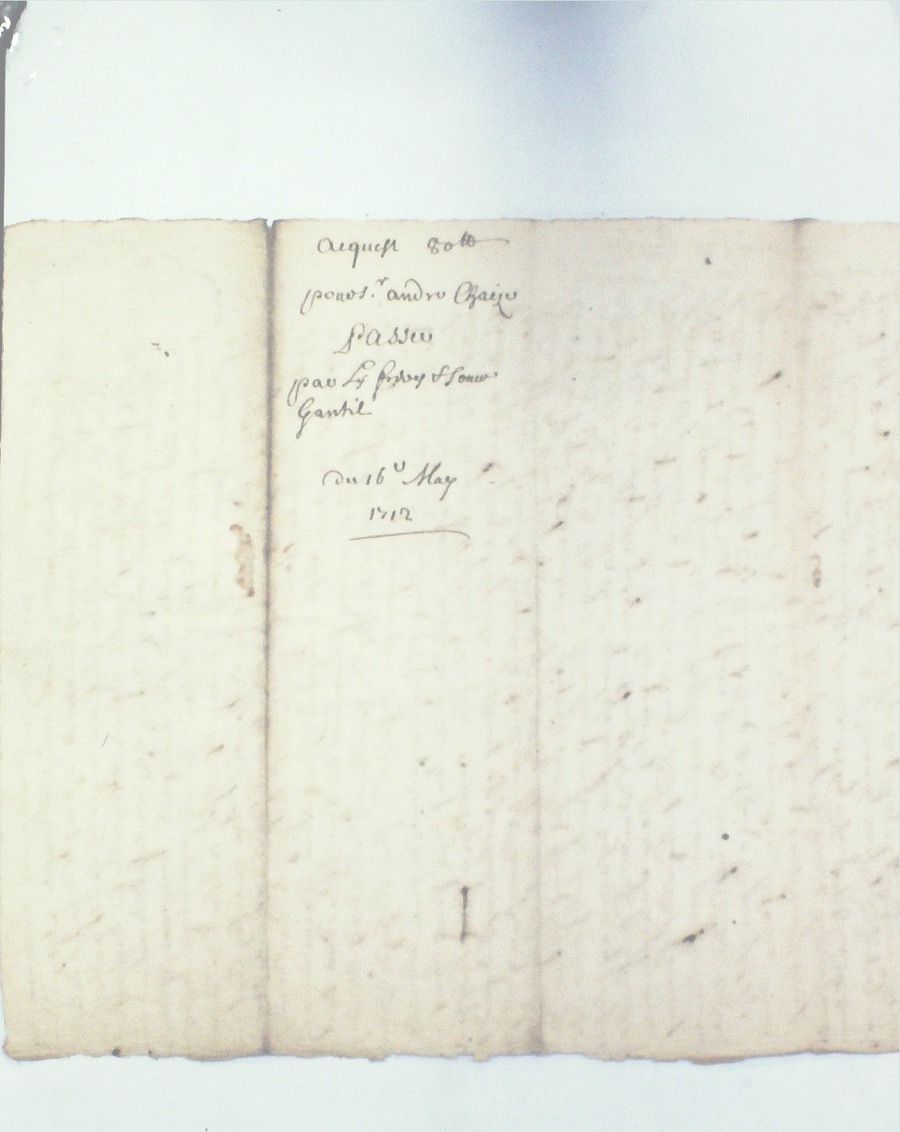 Acquest 80tt
pour sr. andre Chaize
Passée
par Les freres & soeur
Gantil
du 16e May
1712